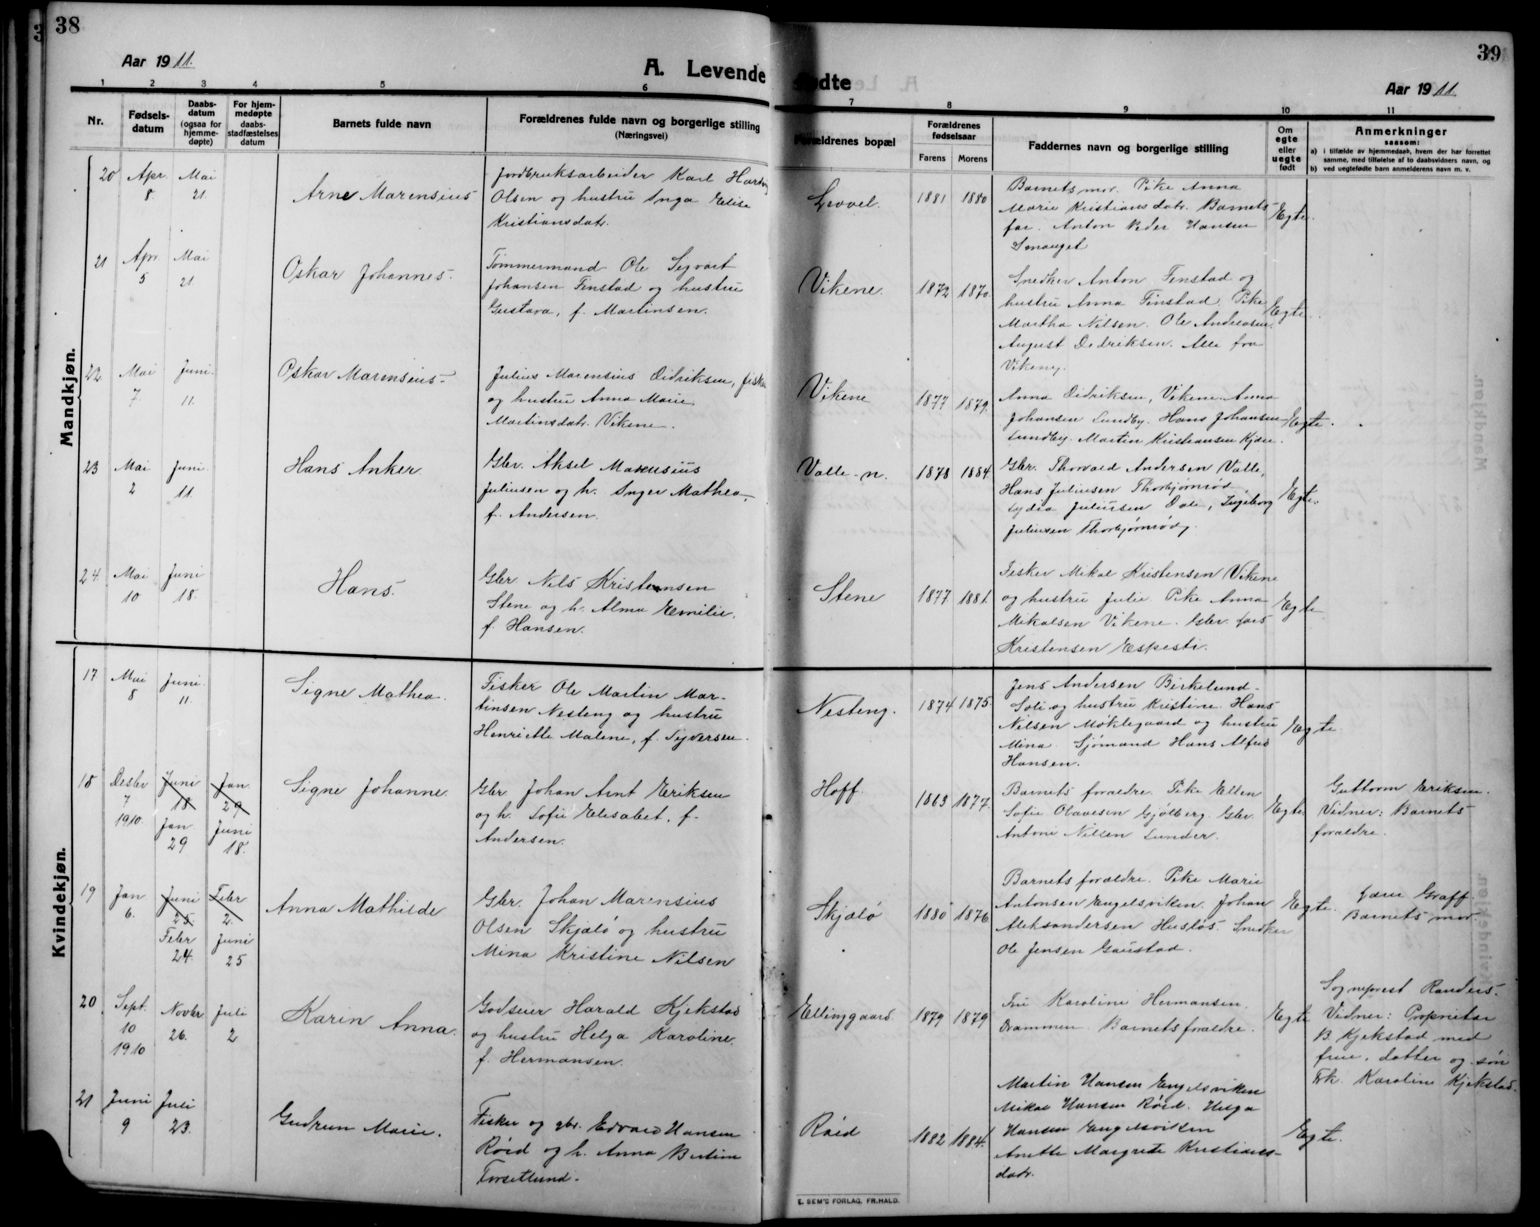 38
39
Aar 1911.
A. Levende
fødte
Aar 1911
1 2 3 4 5 6
7 8 9 10 11
Nr.
Fødsels-
datum
Daabs-
datum
(ogsaa for
hjemme-
døpte)
For hjem-
medøpte
daabs-
stadfæstelses
datum
Barnets fulde navn
Forældrenes fulde navn og borgerlige stilling
(Næringsvei)
Forældrenes bopæl
Forældrenes
fødselsaar
Farens Morens
Faddernes navn og borgerlige stilling
Om
egte
eller
uegte
født
Anmerkninger
saasom:
a) i tilfælde av hjemmedaab, hvem der har forrettet
samme, med tilføielse af to daabsvidners navn, og
b) ved uegtefødte barn anmelderens navn m. v.
Mandkjøn.
20 Apr 8. Mai 21
Arne Marensius
Jordbruksarbeider Karl Hartvig
Olsen og hustru Inga Elise
Kristiansdatr.
Levvel. 1881 1880
Barnets mor. Pike Anna
Marie Kristiansdatr. Barnets
far. Anton Peder Hansen
Smauget
Egte.
21 Apr 5 Mai 21
Oskar Johannes.
Tømmermand Ole Sigvart
Johansen Finstad og hustru
Gustava, f. Martinsen.
Vikene. 1872 1870
Snedker Anton Finstad og
hustru Anna Finstad. Pike
Martha Nilsen. Ole Andreasen.
August Didriksen. Alle fra
Vikene.
Egte.
22 Mai 7 Juni 11.
Oskar Marensius.
Julius Marensius Didriksen, fisker
og hustru Anna Marie
Martinsdatr. Vikene.
Vikene 1877 1879.
Anna Didriksen, Vikene. Anna
Johansen Lundby. Hans Johansen
Lundby. Martin Kristiansen Kjære.
Egte.
23 Mai 2 Juni 11.
Hans Anker.
Gbr. Aksel Marensius
Juliusen og h. Inger Mathea,
f. Andersen.
Valle-n. 1878 1884
Gbr. Thorvald Andersen Valle,
Hans Juliussen Thorbjørnrød
Lydia Juliussen Dale, Ingeborg
Juliussen Thorbjørnrød
Egte.
24. Mai 10 Juni 18.
Hans.
Gbr Nils Kristensen
Stene og h. Alma Emilie.
f. Hansen.
Stene 1877 1881.
Fisker Mikal Kristensen Vikene
og hustru Julie Pike Anna
Mikalsen Vikene. Gbr. Lars
Kristensen Espesti.
Egte
Kvindekjøn.
17 Mai 8 Juni 11.
Signe Mathea.
Fisker Ole Martin Mar-
tinsen Nesteng og hustru
Henriette Malene, f. Syversen.
Nesteng. 1874 1875.
Jens Andersen Birkelund-
Soli og hustru Kristine. Hans
Nilsen Møklegaard og hustru
Mina. Sjømand Hans Alfred
Hansen.
Egte
18 Desbr 7 1910. Juni 18 Jan 29 Jan 29 Juni 18.
Signe Johanne
Gbr Johan Arnt Eriksen
og h. Sofie Elisabet, f.
Andersen.
Hoff. 1863 1877.
Barnets forældre. Pike Ellen
Sofie Olavesen Gjølberg. Gbr.
Antoni Nilsen Lunder.
Egte
Guttorm Eriksen.
Vidner: Barnets
forældre.
19 Jan 6. Juni 25 Febr 24 Febr 2. Juni 25
Anna Mathilde
Gbr. Johan Marensius
Olsen Skjælø og hustru
Mina Kristine Nilsen
Skjælø 1880 1876
Barnets forældre. Pike Marie
Antonsen Engelsviken. Johan
Aleksandersen Husløs. Snedker
Ole Jensen Gaustad.
Egte.
Graff.
Barnets mor.
20 Sept. 10 1910 Novbr 26. Juli 2
Karin Anna.
Godseier Harald Kjekstad
og hustru Helga Karoline,
f. Hermansen.
Ellinggaard 1879 1879
Fru Karoline Hermansen.
Drammen. Barnets forældre.
Egte
Sogneprest Randers.
Vidner: Proprietær
B. Kjekstad med
frue, datter og søn
Frk. Karoline Kjekstad.
21 Juni 9 Juli 23.
Gudrun Marie.
Fisker og gbr. Edvard Hansen
Røed og h. Anna Bertine
Torsetlund.
Røed 1882 1884.
Martin Hansen Engelsviken
Mikal Hansen Røed. Helga
Hansen Engelsviken
Anette Margrete Kristians-
datr.
Egte.
E. SEM'S FORLAG, FR.HALD.